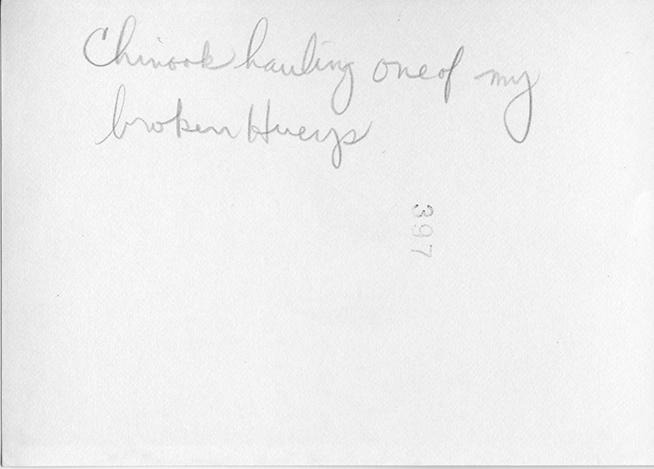 Chinook hauling one of my
broken Hueys
397